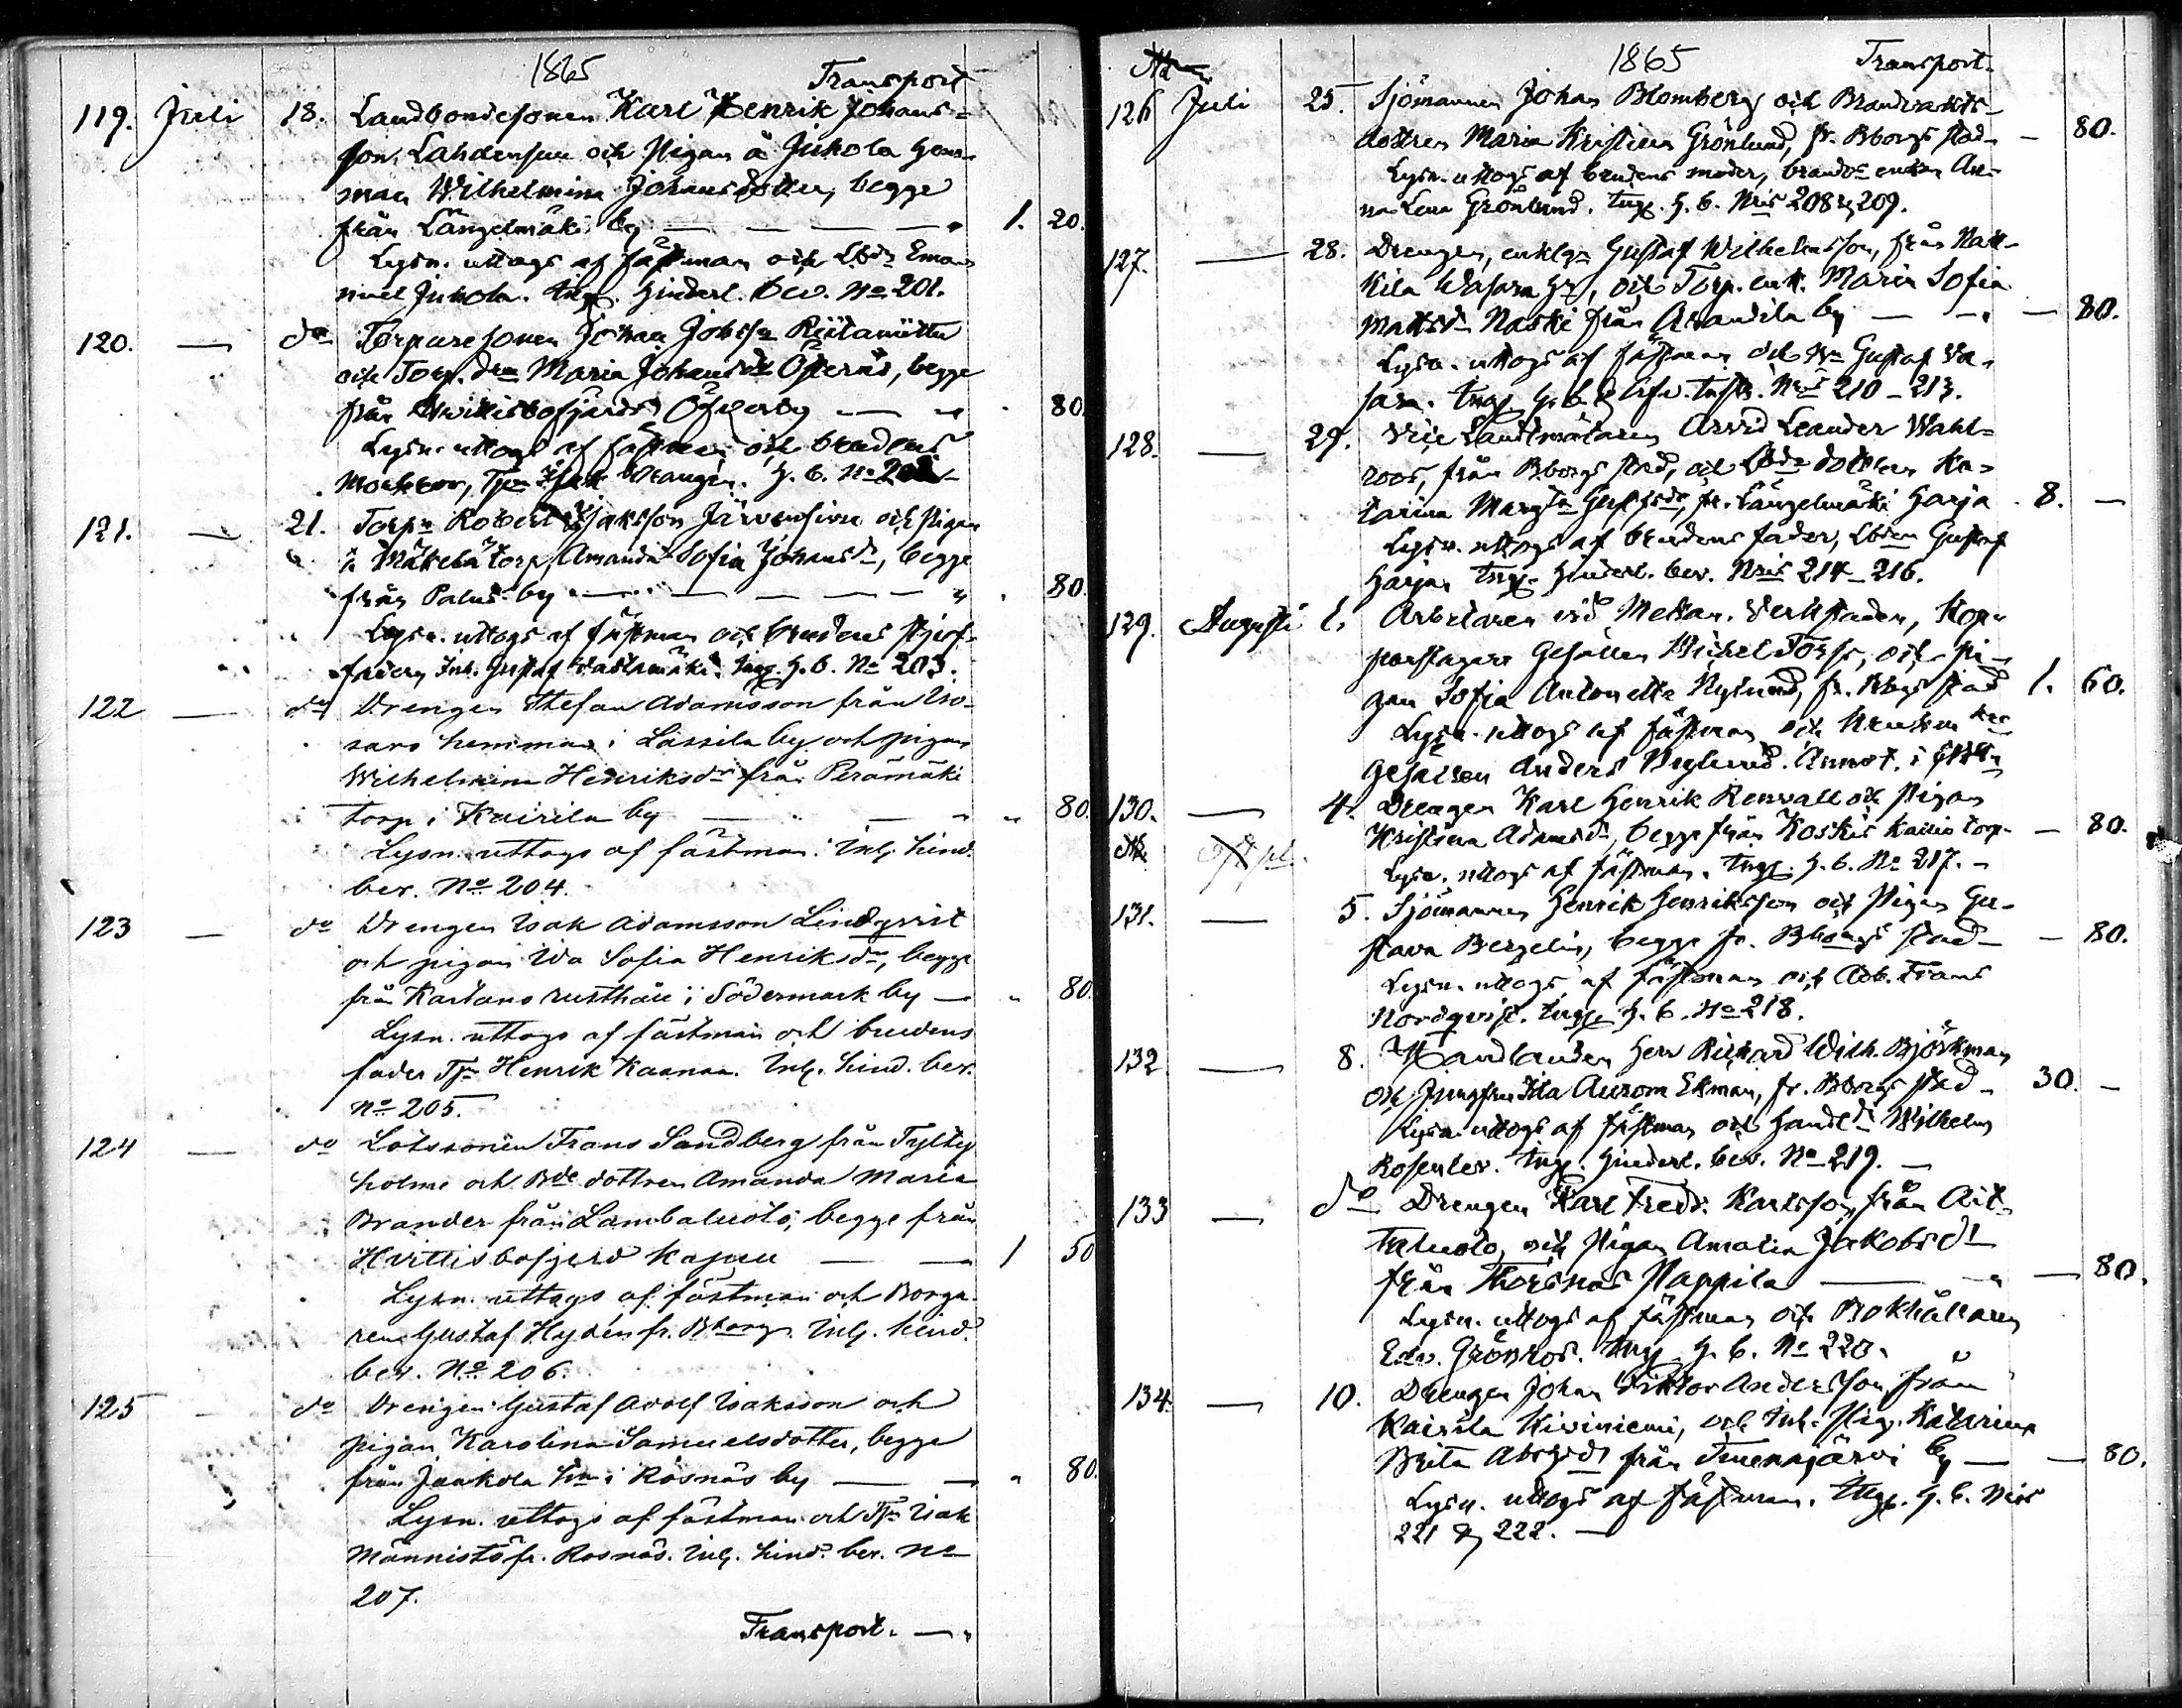 1865
Transport
119. Juli 18. Landbondesonen Karl Henrik Johans=
son Lahdensuu och Pigan å Juhola hem-
man Wilhelmina Johansdotter, begge
från Längelmäki by — — — — 1. 20.
Lysn. uttogs af fästman och Lbdn Ema-
nuel Juhola. Ingf. Hinderl. bev. No 201.
120. — do Torparesonen Johan Johsn
och Torp. drn Maria Johansdr Österås, begge
från Hvittisbofjärds Öfverby — — 80.
Lysn. uttogs af fästman och brudens
H. b. No
121. — 21. Torpn Robert Isaksson Järvensivu och Pigan
å Mäkelä torp, Amanda Sofia Johansdr, begge
från Palus by — — — — — " 80.
Lysn. uttogs af fästman och brudens stjuf-
fader, Inh. Gustaf Ingf. H. b. No 203.
122 — do Drengen Stefan Adamsson från Iso-
saro hemman i Lassila by och pigan
Wilhelmina Henriksdr från Perämäki
torp i Kairila by — — " " 80.
Lysn. uttogs af fästman. Inlg. hind.
bev. No 204.
123 — do Drengen Isak Adamsson Lindqvist
och pigan Ida Sofia Henriksdr, begge
från Kartano rusthåll i Södermark by — " 80.
Lysn. uttogs af fästman och brudens
fader Tpn Henrik Kaanaa. Inlg. hind. bev.
No 205.
124 — do Lotssonen Frans Sandberg från
holme och Bde dottren Amanda Maria
Brander från Lambaluoto, begge från
Hvittisbofjerd kapell — — 1 50
Lysn. uttogs af fästman och Borga-
ren Gustaf Hydén fr. Bborg. Inlg. hind.
bev. No 206.
125 — do Drengen Gustaf Adolf Isaksson och
pigan Karolina Samuelsdotter, begge
från Jaakola hn i Rosnäs by — — " 80.
Lysn. uttogs af fästman och Tpn Isak
Männistö fr. Rosnäs. Inlg. hind. bev. No
207.
Transport. —
1865
Transport.
126 Juli 25. Sjömannen Johan Blomberg och Brandvakts-
dottren Maria Kristina Grönlund, fr. Bborgs stad — 80.
Lysn. uttogs af brudens moder, brandv. enkan An-
na Lena Grönlund. Ingf. H. b. Nris 208 & 209.
127. — 28. Drengen, enklgn Gustaf Wilhelmsson, från Nak-
kila Wasara hn, och Torp. enk. Maria Sofia
Mattsdr Naski från Arandila by — — — 80.
Lysn. uttogs af fästman och Gustaf Va-
sara. Ingf. H. b. & Afv. Inst. Nris 210 – 213.
128. — 29. Vice Landtmätaren Arvid Leander Wahl=
roos, från Bborgs stad, och Lbdr dottren Ka-
tarina Margta Gustfsdr, fr. Längelmäki Harja 8. —
Lysn. uttogs af brudens fader, Lbden Gustaf
Harja. Ingf. Hinderl. bev. Nris 214 – 216.
129. Augusti 1. Arbetaren vid Mekan. Verkstaden, Kop-
parslagare Gesällen Michel och Pi-
gan Sofia Antonetta Nylund, fr. Bborgs stad 1. 60.
Lysn. uttogs af fästman och
Gesällen Anders Neglund. Annot. i
130. — 4. Drengen Karl Henrik Renvall och Pigan
Kristina Adamsdr, begge från Koskis torp — 80.
Lysn. uttogs af fästman. Ingf. H. b. No 217. –
131. — 5. Sjömannen Henrik Henriksson och Pigan Gu-
stava Bergelin, begge fr. Bborgs stad — — 80.
Lysn. uttogs af fästman och Arb. Frans
Nordqvist. Ingf. H. b. No 218.
132 — 8. Handlanden Herr Richard Wilh. Björkman
och Jungfru Ida Aurora Ekman, fr. Bborgs stad – 30. –
Lysn. uttogs af fästman och Handldn Wilhelm
Rosenlew. Ingf. Hinderl. bev. No 219. –
133 — do Drengen Karl Fredr. Karlsson, från
och Pigan Amalia Jakobsdr
från Thorsnäs Pappila — — — 80.
Lysn. uttogs af fästman och Bokhållaren
Edv. Grönroos. Ingf. H. b. No 220.
134. — 10. Drengen Johan Viktor Andersson från
Kairila Kiviniemi, och Inh. Pig. Katarina
Brita Abrhdr från Tuurujärvi by — — 80.
Lysn. uttogs af fästman. Ingf. H. b. Nris
221 & 222. —